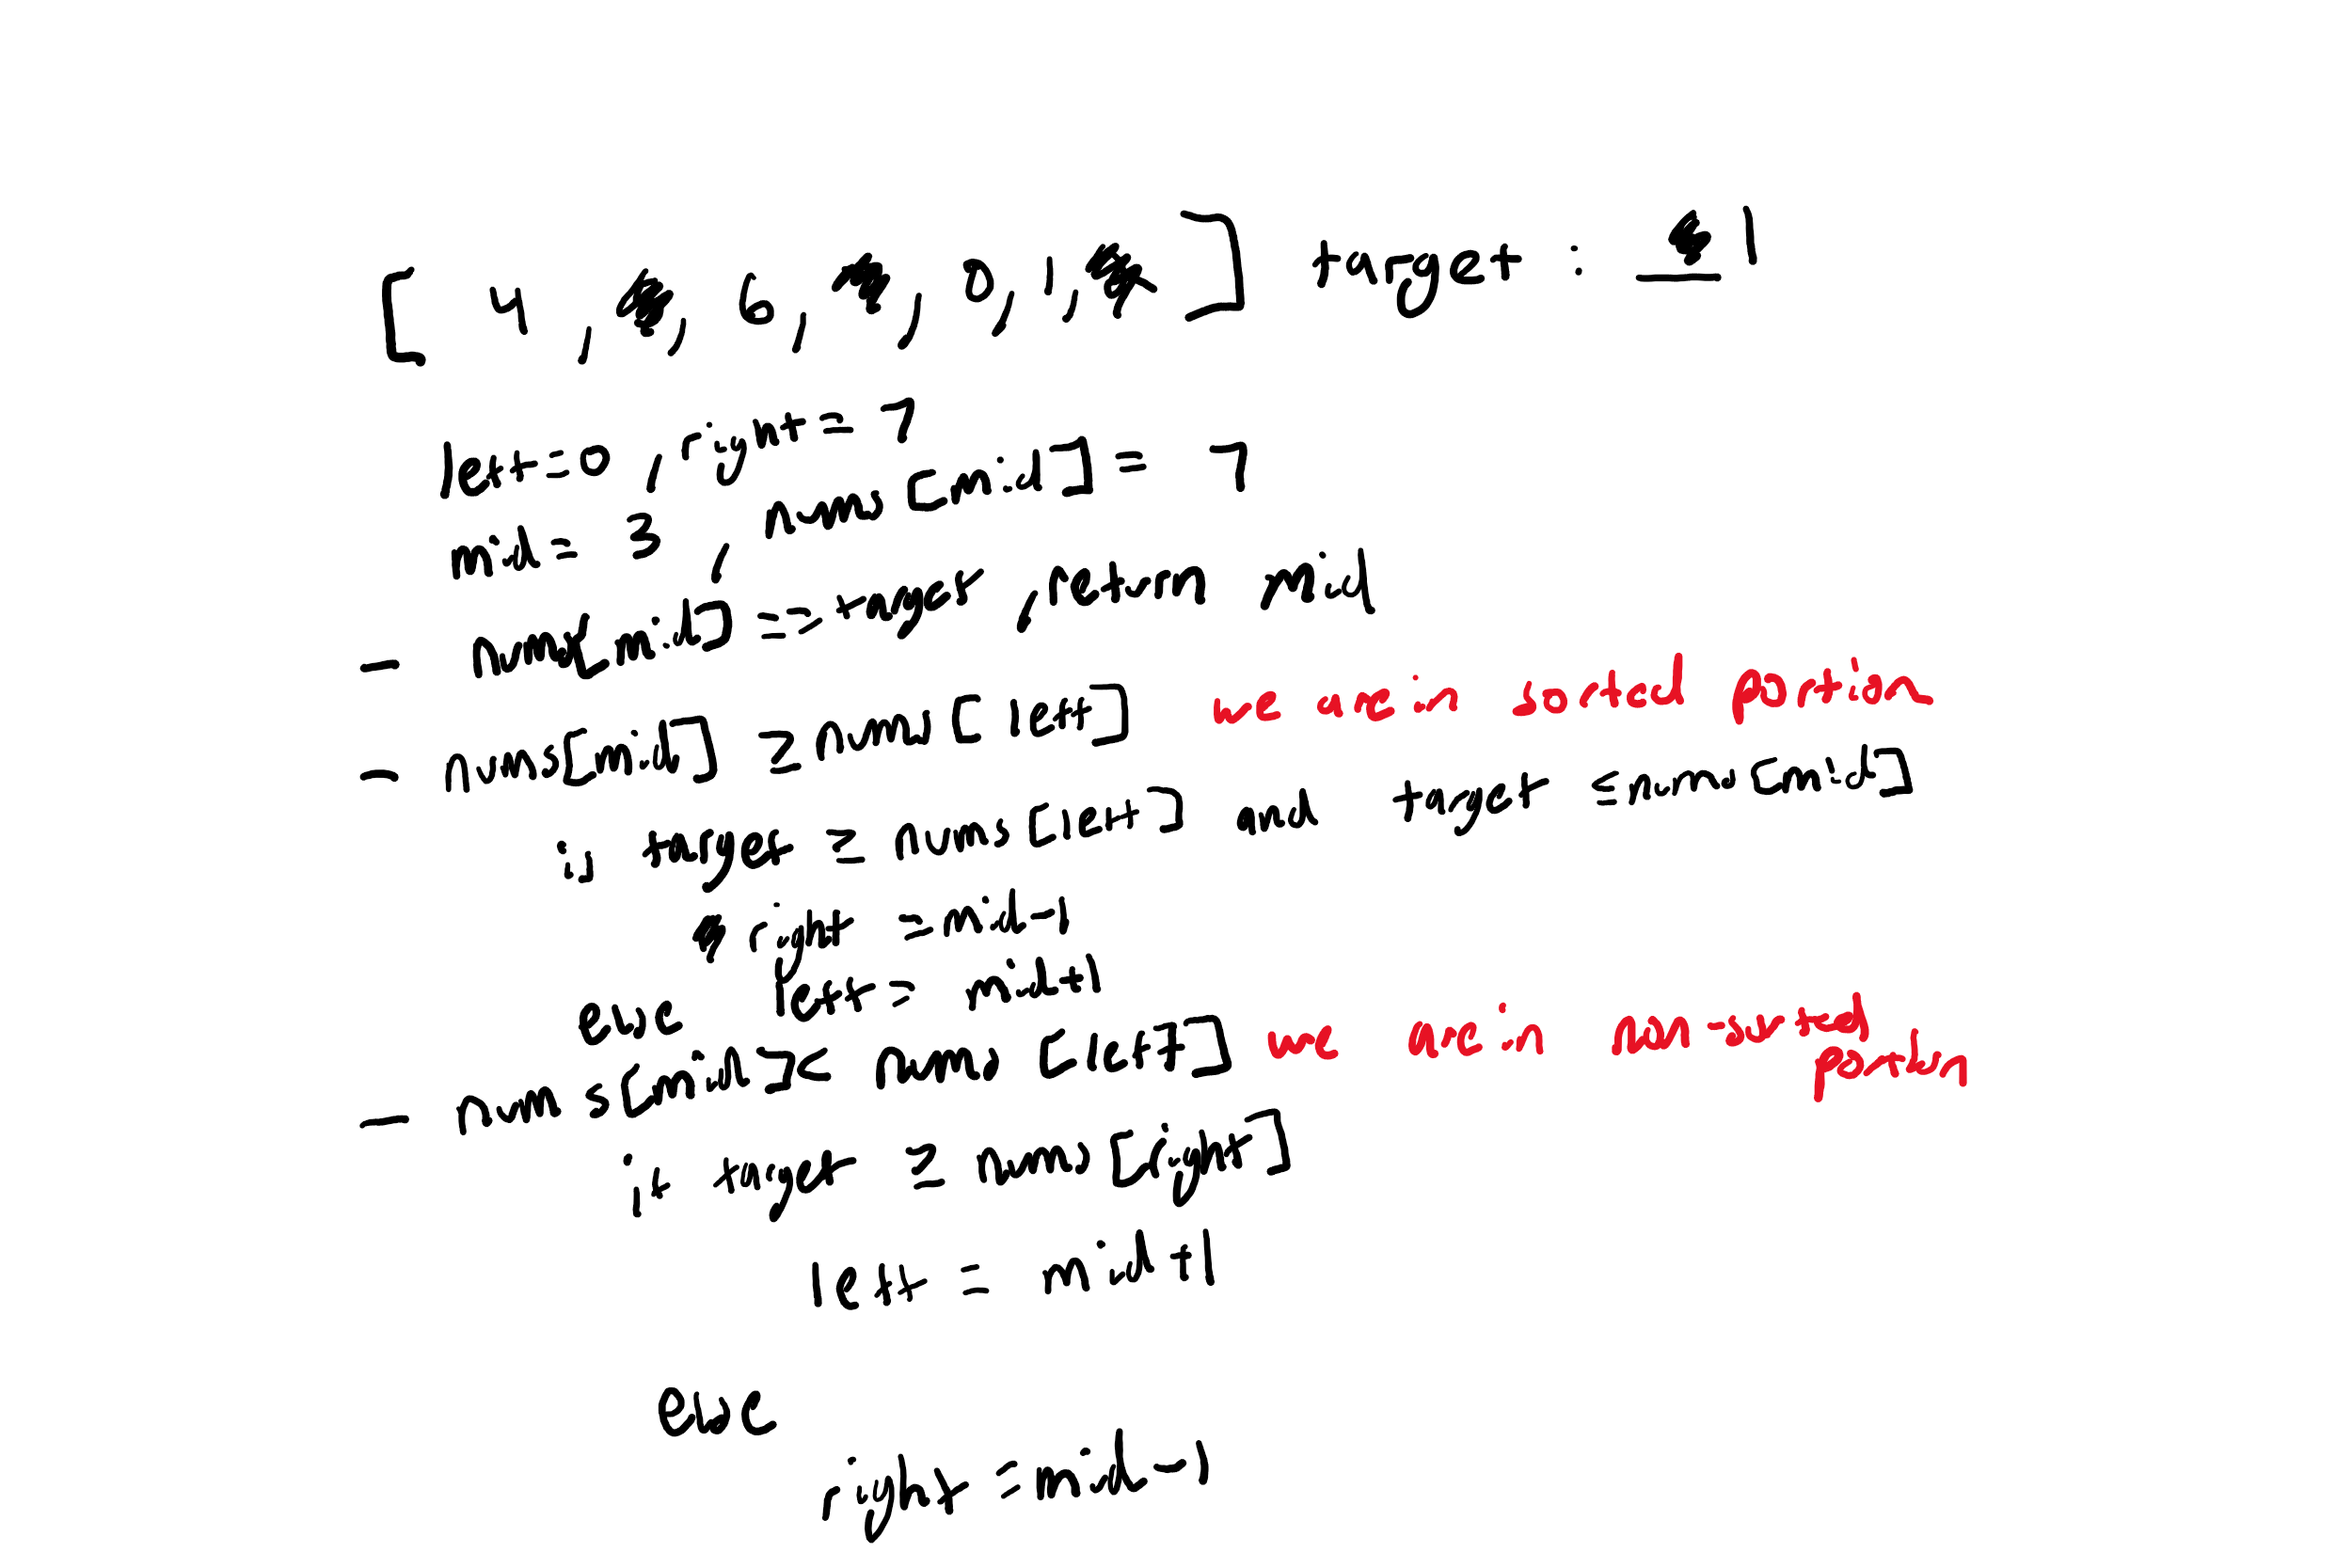 [ 4 , , 6 , , 0 , 1 , ] target : 1
left = 0 , right = 7
mid = 3 , nums [mid] = 7
- nums[mid] == target , return mid
- nums[mid] ≥ nums [left] we are in sorted portion
if target ≥ nums [left] and target ≤ nums [mid]
right = mid-1
else left = mid+1
- nums[mid] < nums [left] we are in non-sorted portion
if target ≥ nums [right]
left = mid+1
else
right = mid-1